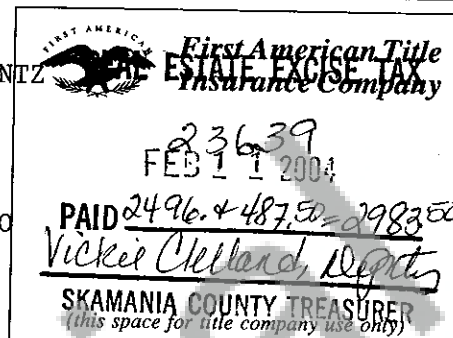 FIRST AMERICAN
First American Title
NTZ REAL ESTATE EXCISE TAX
Insurance Company
23639
FEB 11 2004
O PAID 2496.+487.50=2983.50
Vickie Clelland, Deputy
SKAMANIA COUNTY TREASURER
(this space for title company use only)